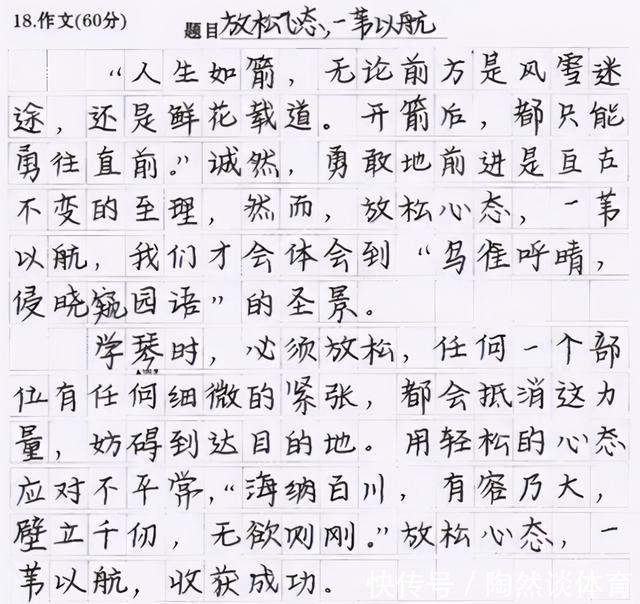 18.作文(60分) 题目放松心态,一苇以航
“人生如箭，无论前方是风雪迷
途，还是鲜花载道。开箭后，都只能
勇往直前。”诚然，勇敢地前进是亘古
不变的至理，然而，放松心态，一苇
以航，我们才会体会到“鸟雀呼晴，
侵晓窥园语”的圣景。
学琴时，必须放松，任何一个部
位有任何细微的紧张，都会抵消这力
量，妨碍到达目的地。用轻松的心态
应对不平常，“海纳百川，有容乃大，
壁立千仞，无欲则刚。”放松心态，一
苇以航，收获成功。
快传号 / 陶然谈体育